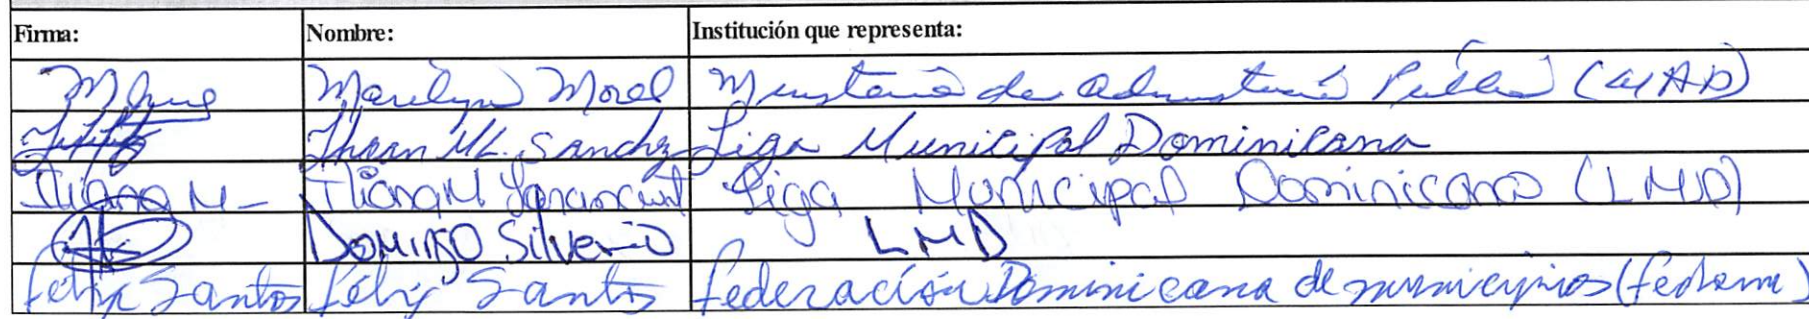 Firma: Nombre: Institución que representa:
Marilyn Morel Ministerio de Administración Pública (MAP)
Jhoan Ml. Sanchz Liga Municipal Dominicana
Iliana M- Iliana M Liga Municipal Dominicana (LMD)
DOMINGO SilVeriO LMD
Félix Santos Félix Santos federación Dominicana de municipios (fedomu)